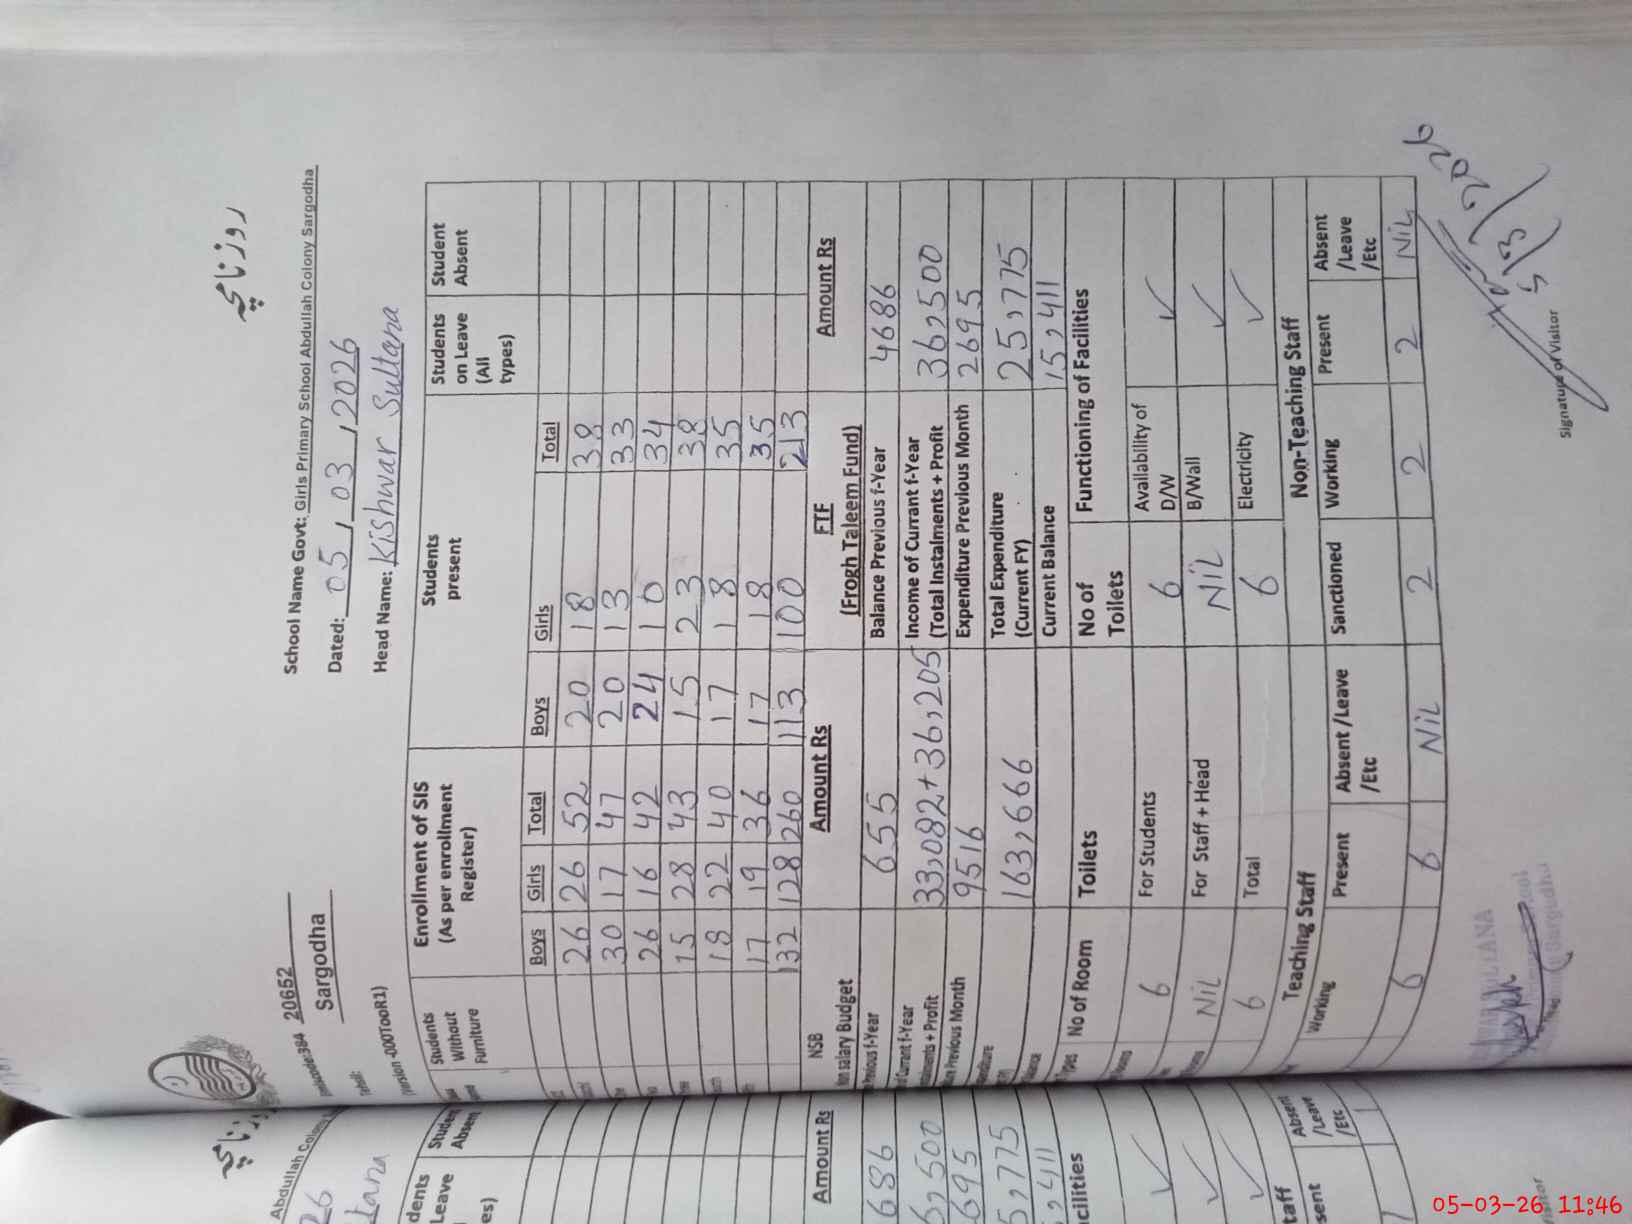 روزنامچہ
20652
School Name Govt: Girls Primary School Abdullah Colony Sargodha
Sargodha
Dated: 05, 03, 2026
Tehil:
Head Name: Kishwar Sultana
Students Without Furniture
Enrollment of SIS (As per enrollment Register)
Students present
Students on Leave (All types)
Student Absent
Boys Girls Total Boys Girls Total
26 26 52 20 18 38
30 17 47 20 13 33
26 16 42 24 10 34
15 28 43 15 23 38
18 22 40 17 18 35
17 19 36 17 18 35
132 128 260 113 100 213
NSB Amount Rs FTF Amount Rs
salary Budget (Frogh Taleem Fund)
Previous f-Year 655 Balance Previous f-Year 4686
Current f-Year 33,082+36,205 Income of Currant f-Year 36,500
+ Profit (Total Instalments + Profit
Previous Month 9516 Expenditure Previous Month 2695
163,666 Total Expenditure (Current FY) 25,775
Current Balance 15,411
No of Room Toilets No of Toilets Functioning of Facilities
6 For Students 6 Availability of D/W ✓
NiL For Staff + Head NiL B/Wall ✓
6 Total 6 Electricity ✓
Teaching Staff Non-Teaching Staff
Working Present Absent /Leave /Etc Sanctioned Working Present Absent /Leave /Etc
6 6 NiL 2 2 2 NiL
5/3/2026
Signature of Visitor
روزنامچہ
Abdullah Colony
26
tana
Leave
Student Absent
es)
Amount Rs
686
6,500
695
5,775
5,411
acilities
✓
✓
✓
taff
sent
Absent /Leave /Etc
05-03-26 11:46